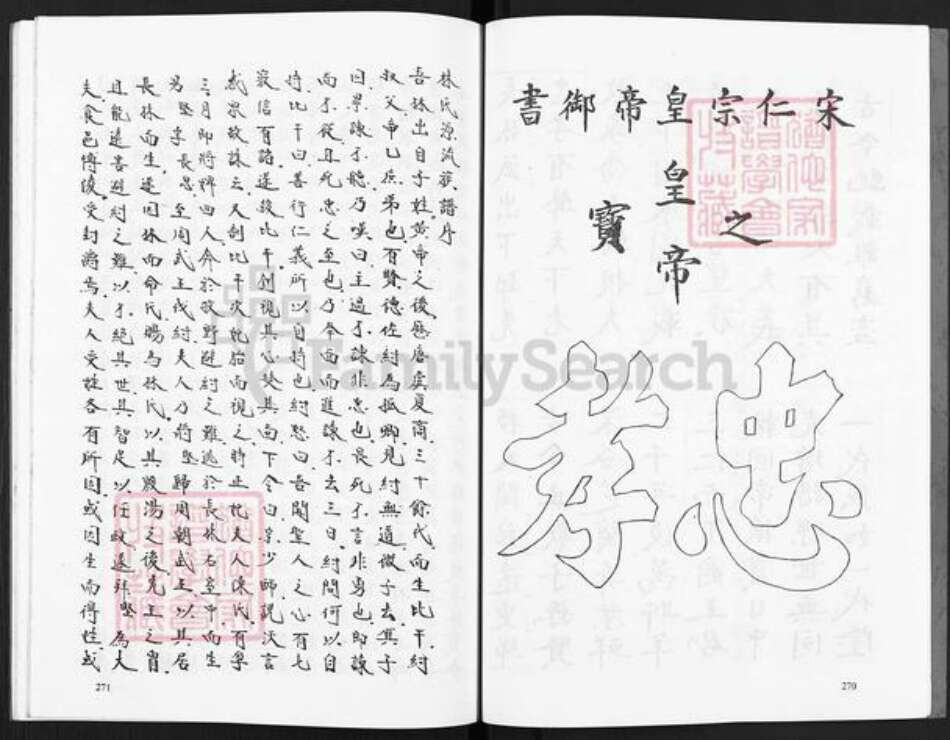 宋仁宗皇帝御書
皇帝
之
寶
忠孝
270
林氏源流族譜序
吾林出自子姓黃帝之後歷唐虞夏商三十餘代而生比干紂
叔父帝乙庶弟也有賢德佐紂為孤卿見紂無道微子去箕子
囚學諫不聽乃嘆曰主過不諫非忠也畏死不言非勇也即諫
而不從且死忠之至也乃今面而進諫不去三日紂問何以自
恃比干曰善行仁義所以自恃也紂怒曰吾聞聖人之心有七
竅信有諸遂殺比干剖視其心焚其面下令曰少師說沃言
惑眾故誅之又刳比干次妃胎而視之時正妃夫人陳氏有孕
三月即將婢四人奔於牧野避紂之難逃於長林石室中而生
男堅字長思至周武王伐紂夫人乃將堅歸周朝武王以其居
長林而生遂因林而命氏賜為林氏以其殷湯之後先王之胄
且能遠害避紂之難以不絕其世其智足以任政遂拜堅為大
夫食邑博陵受封爵焉夫人受誥各有所因或因生而得姓或
271
FamilySearch